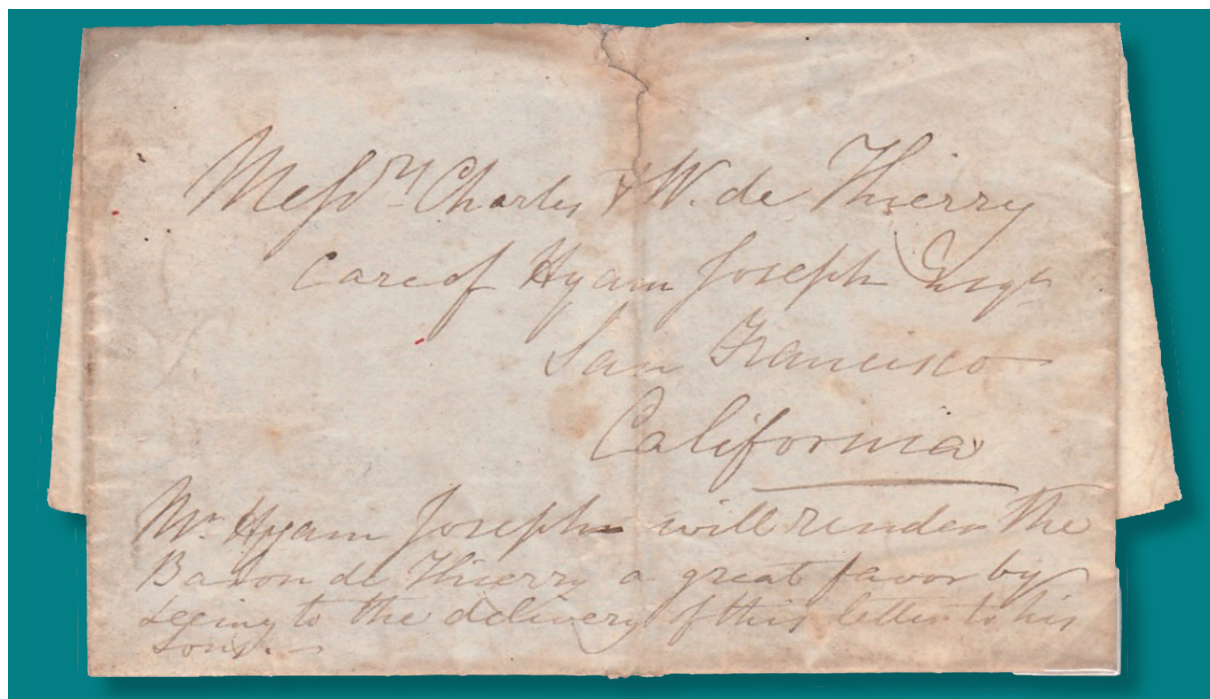 Messrs Charles & W. de Thierry
Care of Hyam Joseph Esqr
San Francisco
California
Mr Hyam Joseph will render the
Baron de Thierry a great favor by
seeing to the delivery of this letter to his
sons. —